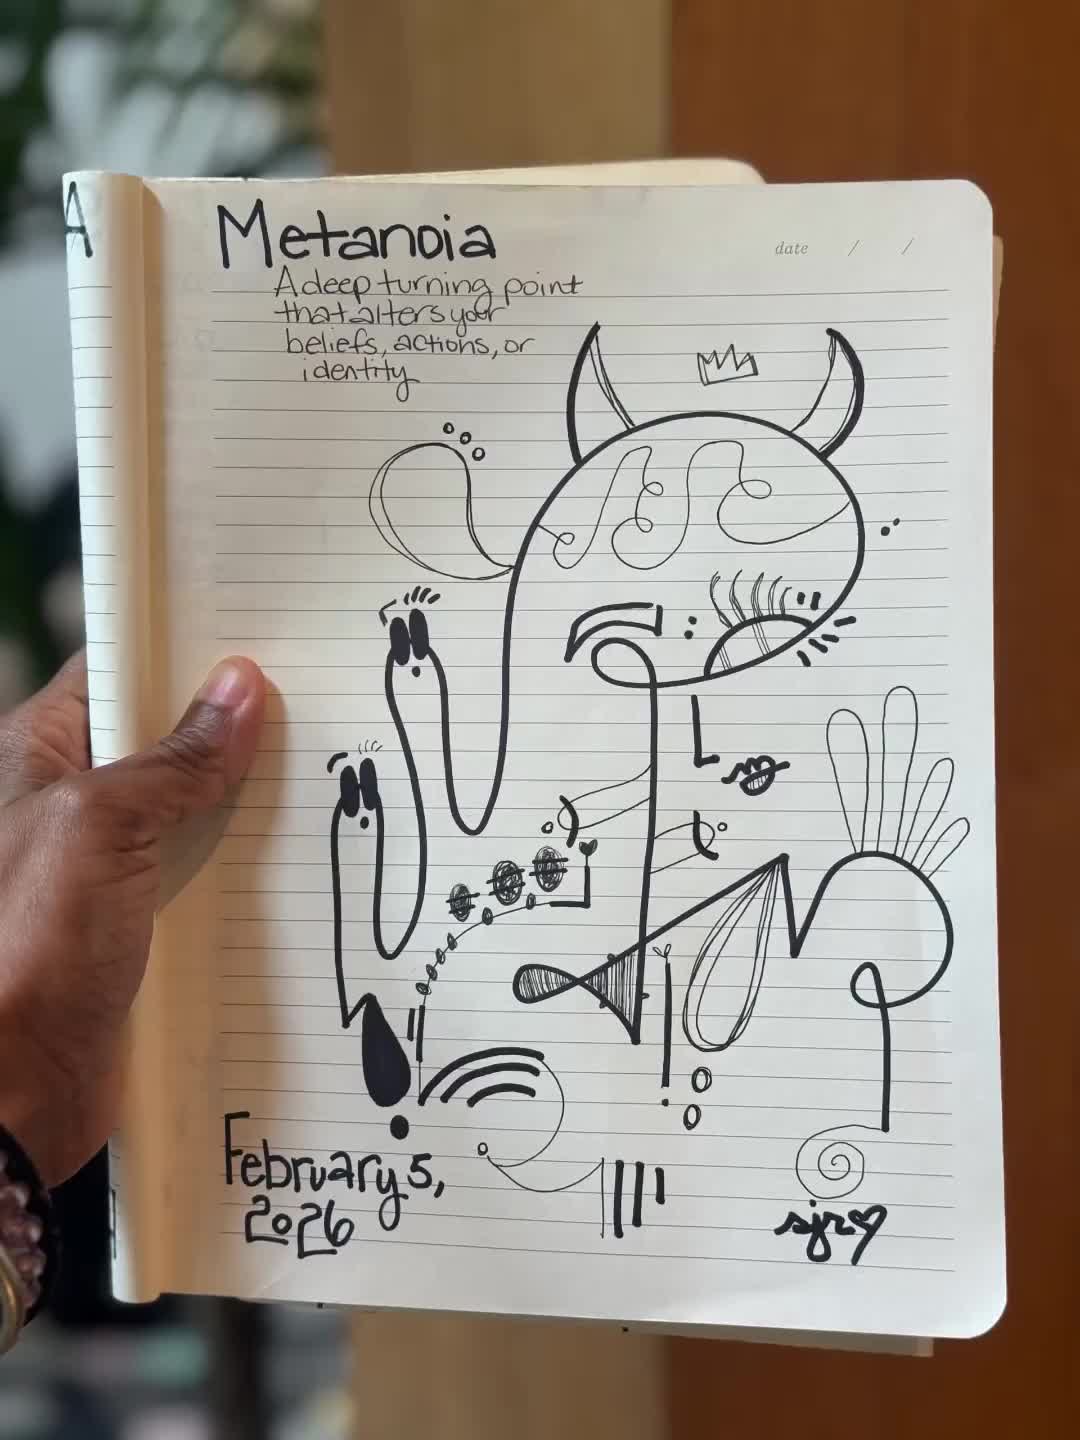 A
Metanoia
date / /
A deep turning point
that alters your
beliefs, actions, or
identity
February 5,
2026
sjr